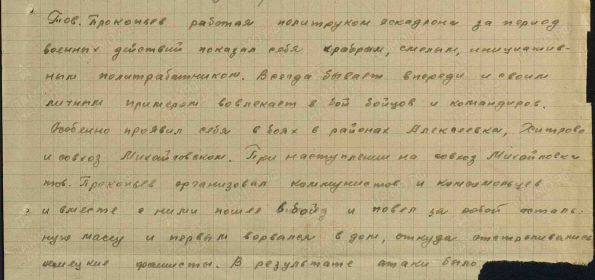 Тов. Прокопьев работая политруком эскадрона за период
военных действий показал себя храбрым, смелым, инициатив-
ным политработником. Всегда бывает впереди и своим
личным примером вовлекает в бой бойцов и командиров.
Особенно проявил себя в боях в районах Алексеевка, Хитрово
и совхоз Михайловском. При наступлении на совхоз Михайловка
тов. Прокопьев организовал коммунистов и комсомольцев
и вместе с ними пошел в бой и повел за собой осталь-
ную массу и первым ворвался в дом, откуда отстреливались
немецкие фашисты. В результате атаки было